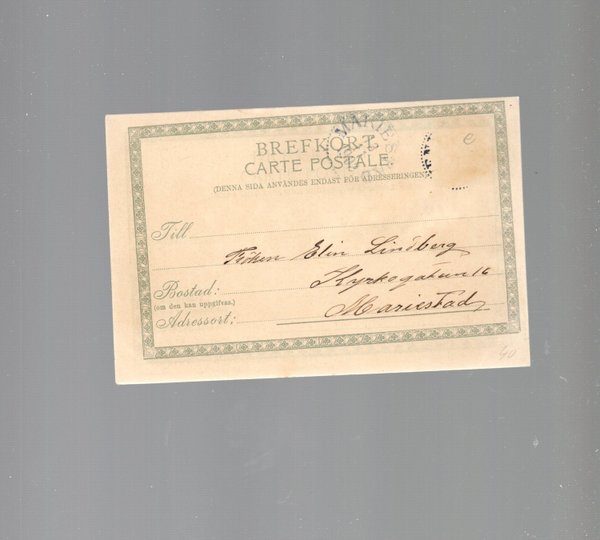 BREFKORT.
CARTE POSTALE.
(DENNA SIDA ANVÄNDES ENDAST FÖR ADRESSERINGEN)
e
Till
Fröken Elin Lindberg
Kyrkogatan 16
Bostad:
(om den kan uppgifvas.)
Mariestad
Adressort:
40